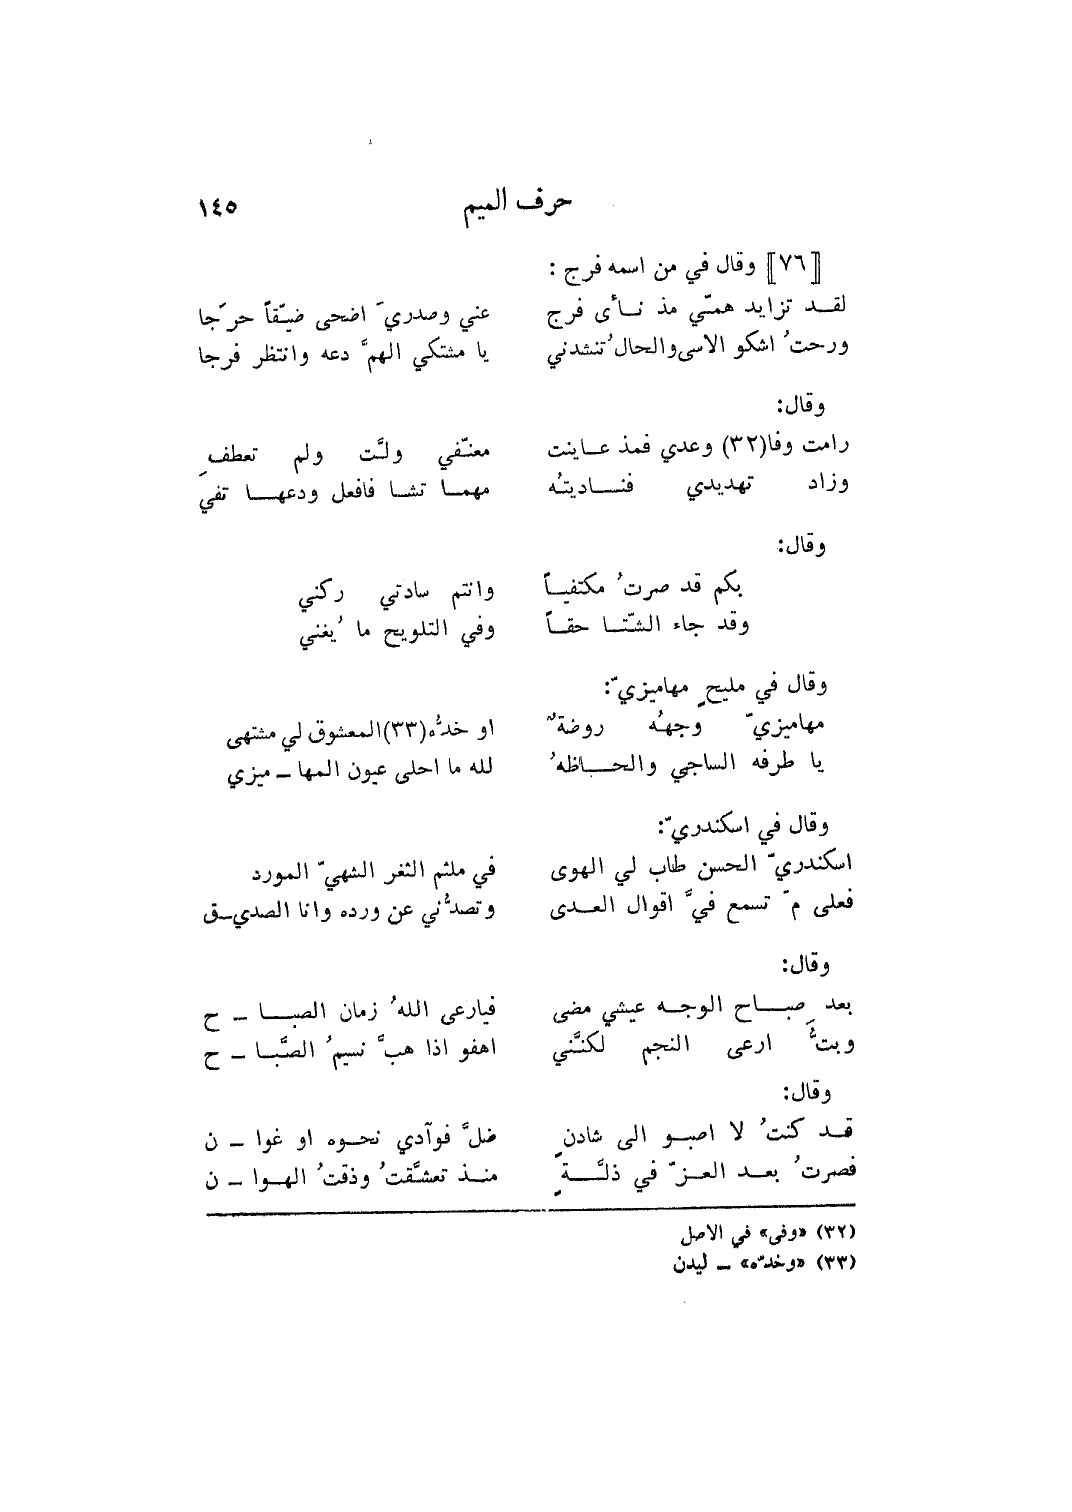 حرف الميم ١٤٥
[٧٦] وقال في من اسمه فرج :
لقد تزايد همّي مذ نأى فرج عني وصدريَ اضحى ضيّقاً حرَجا
ورحتُ اشكو الاسى والحالُ تنشدني يا مشتكي الهمَّ دعه وانتظر فرجا
وقال:
رامت وفا(٣٢) وعدي فمذ عاينت معنّفي ولَّت ولم تعطفِ
وزاد تهديدي فناديتُه مهما تشا فافعل ودعها تفي
وقال:
بكم قد صرتُ مكتفياً وانتم سادتي ركني
وقد جاء الشّتا حقاً وفي التلويح ما يُغني
وقال في مليحٍ مهاميزيّ:
مهاميزيّ وجهُه روضةٌ او خدُّه(٣٣)المعشوق لي مشتهى
يا طرفه الساجي والحاظهُ لله ما احلى عيون المها ــ ميزي
وقال في اسكندريّ:
اسكندريّ الحسن طاب لي الهوى في ملثم الثغر الشهيّ المورد
فعلى مَ تسمع فيَّ اقوال العدى وتصدُّني عن ورده وانا الصديـق
وقال:
بعد صِباح الوجه عيشي مضى فيارعى اللهُ زمان الصبا ــ ح
وبتُّ ارعى النجم لكنَّني اهفو اذا هبَّ نسيمُ الصَّبا ــ ح
وقال:
قد كنتُ لا اصبو الى شادنٍ ضلَّ فوآدي نحوه او غوا ــ ن
فصرتُ بعد العزّ في ذلَّةٍ منذ تعشَّقتُ وذقتُ الهوا ــ ن
(٣٢) «وفى» في الاصل
(٣٣) «وخدّه» ــ ليدن